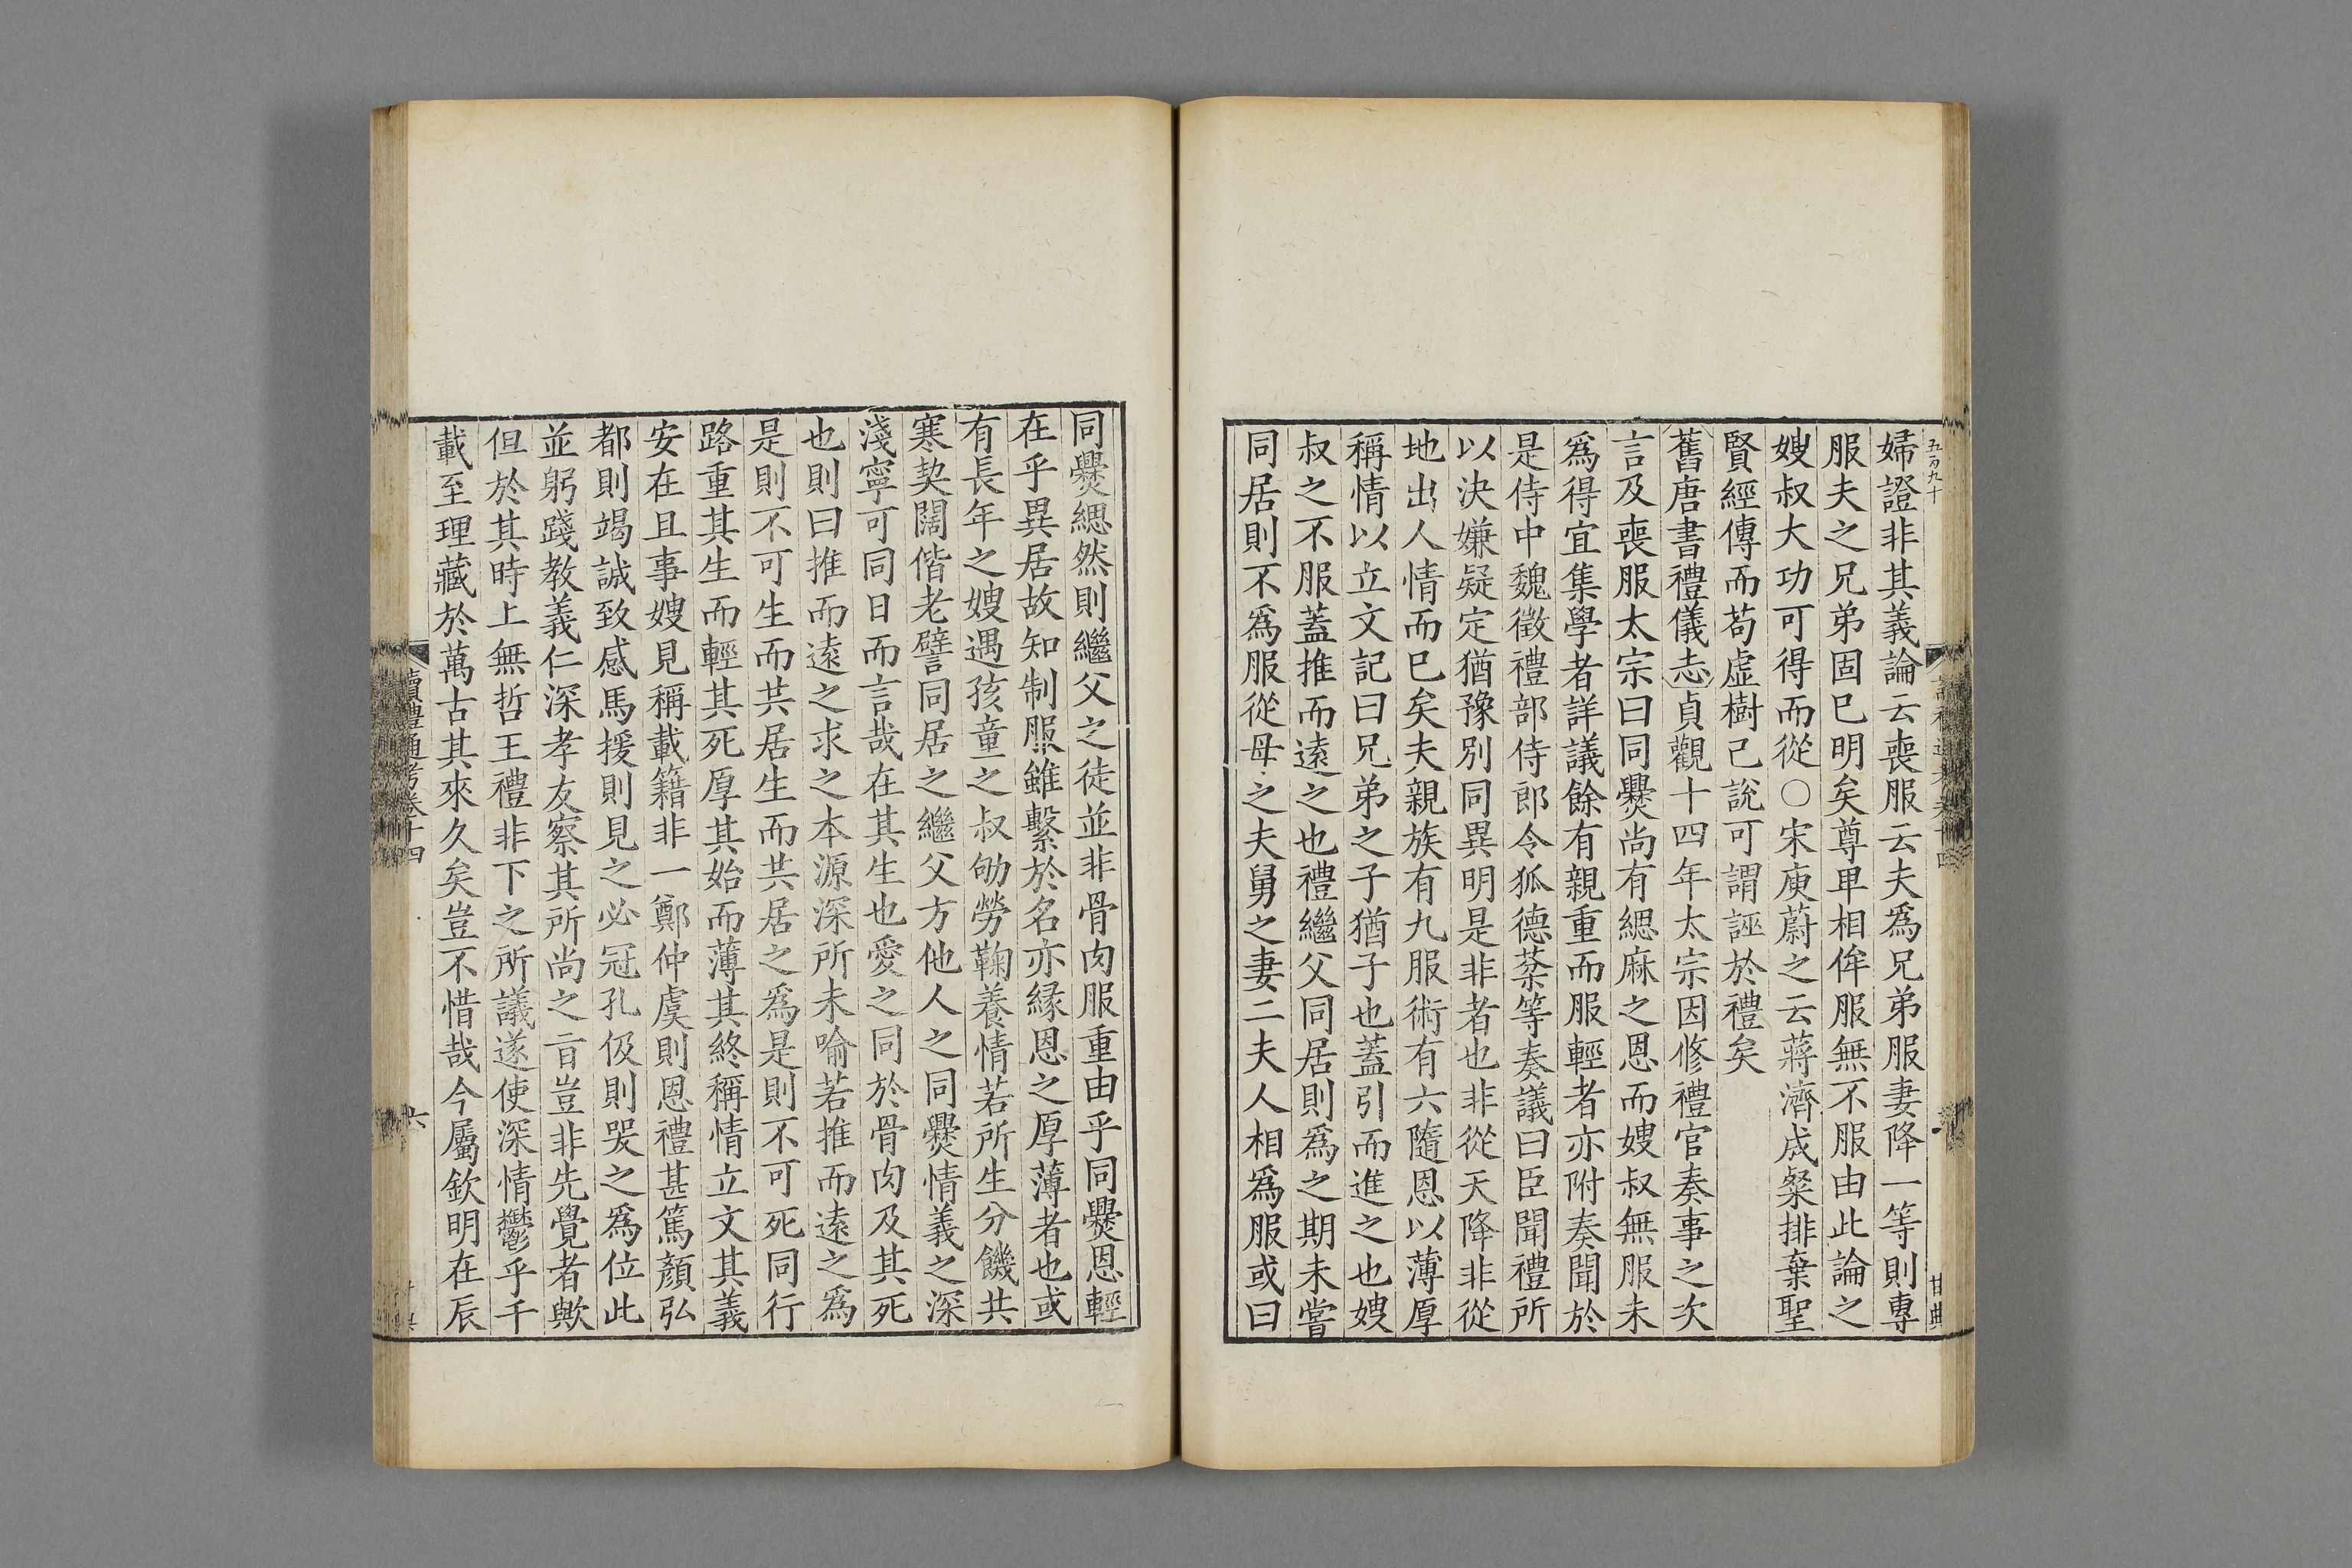 五百九十
甘典
婦證非其義論云喪服云夫爲兄弟服妻降一等則專
服夫之兄弟固巳明矣尊卑相侔服無不服由此論之
嫂叔大功可得而從〇宋庾蔚之云蔣濟成粲排棄聖
賢經傳而苟虛樹己說可謂誣於禮矣
舊唐書禮儀志貞觀十四年太宗因修禮官奏事之次
言及喪服太宗曰同爨尚有緦麻之恩而嫂叔無服未
爲得宜集學者詳議餘有親重而服輕者亦附奏聞於
是侍中魏徵禮部侍郎令狐德棻等奏議曰臣聞禮所
以決嫌疑定猶豫別同異明是非者也非從天降非從
地出人情而巳矣夫親族有九服術有六隨恩以薄厚
稱情以立文記曰兄弟之子猶子也蓋引而進之也嫂
叔之不服蓋推而遠之也禮繼父同居則爲之期未嘗
同居則不爲服從母之夫舅之妻二夫人相爲服或曰
同爨緦然則繼父之徒並非骨肉服重由乎同爨恩輕
在乎異居故知制服雖繫於名亦緣恩之厚薄者也或
有長年之嫂遇孩童之叔劬勞鞠養情若所生分饑共
寒契闊偕老譬同居之繼父方他人之同爨情義之深
淺寧可同日而言哉在其生也愛之同於骨肉及其死
也則曰推而遠之求之本源深所未喻若推而遠之爲
是則不可生而共居生而共居之爲是則不可死同行
路重其生而輕其死厚其始而薄其終稱情立文其義
安在且事嫂見稱載籍非一鄭仲虞則恩禮甚篤顏弘
都則竭誠致感馬援則見之必冠孔伋則哭之爲位此
並躬踐教義仁深孝友察其所尚之旨豈非先覺者歟
但於其時上無哲王禮非下之所議遂使深情鬱乎千
載至理藏於萬古其來久矣豈不惜哉今屬欽明在辰
讀禮通考卷十四
六